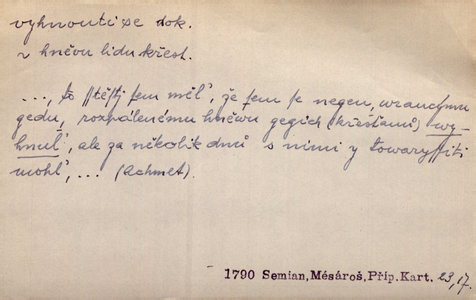 vyhnouti se dok.
v hněvu lidu křest.
..., to sstěstj sem měl, že sem se negen, wraucýmu
gedu, rozpálenému hněwu gegich (křesťanů) wy-
hnul, ale za několik dnů s nimi y towaryssiti
mohl, ... (Achmet).
1790 Semian, Mésároš, Příp. Kart. 23, 17.